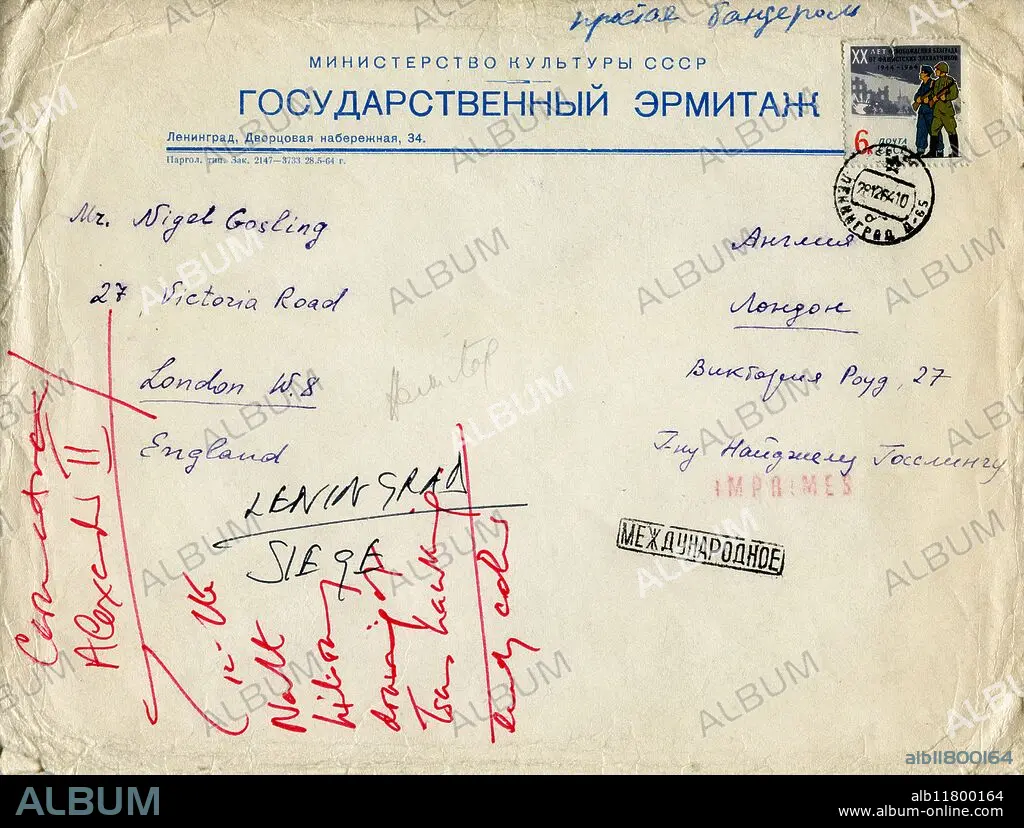 простая бандероль
МИНИСТЕРСТВО КУЛЬТУРЫ СССР
ГОСУДАРСТВЕННЫЙ ЭРМИТАЖ
Ленинград, Дворцовая набережная, 34.
Паргол. тип. Зак. 2147—3733 28.5-64 г.
XX ЛЕТ ОСВОБОЖДЕНИЯ БЕЛГРАДА
ОТ ФАШИСТСКИХ ЗАХВАТЧИКОВ
1944-1964
6
ПОЧТА
ЛЕНИНГРАД Д-65
Mr. Nigel Gosling
27 Victoria Road
London W.8
England
Англия
Лондон
Виктория Роуд, 27
Г-ну Найджелу Госслингу
IMPRIMES
МЕЖДУНАРОДНОЕ
LENINGRAD
SIEGE
II
ALBUM
alb11800164
ALBUM
alb11800164
www.album-online.com